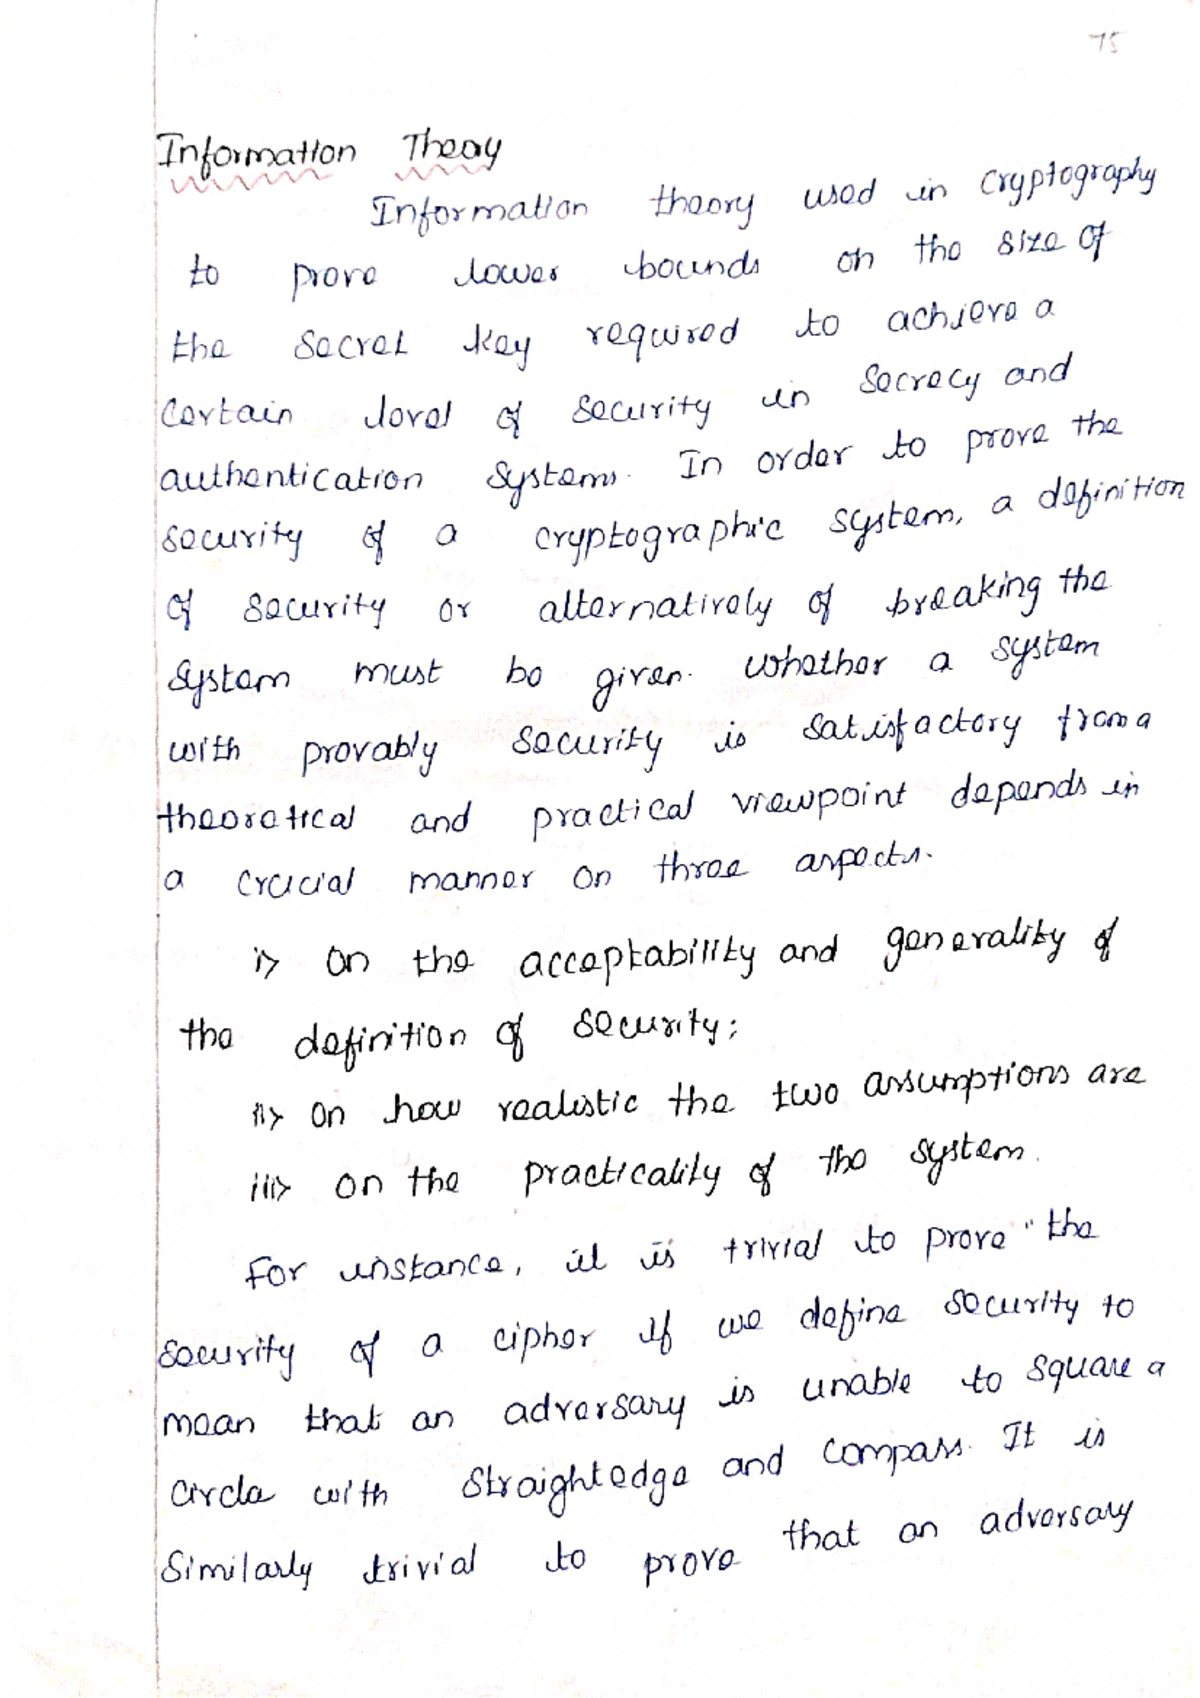 75
Information Theory
Information theory used in cryptography
to prove lower bounds on the size of
the secret key required to achieve a
certain level of security in secrecy and
authentication systems. In order to prove the
security of a cryptographic system, a definition
of security or alternatively of breaking the
system must be given. Whether a system
with provably security is satisfactory from a
theoretical and practical viewpoint depends in
a crucial manner on three aspects.
i> on the acceptability and generality of
the definition of security;
ii> on how realistic the two assumptions are
iii> on the practicality of the system.
For instance, it is trivial to prove the
security of a cipher if we define security to
mean that an adversary is unable to square a
circle with straightedge and compass. It is
similarly trivial to prove that an adversary